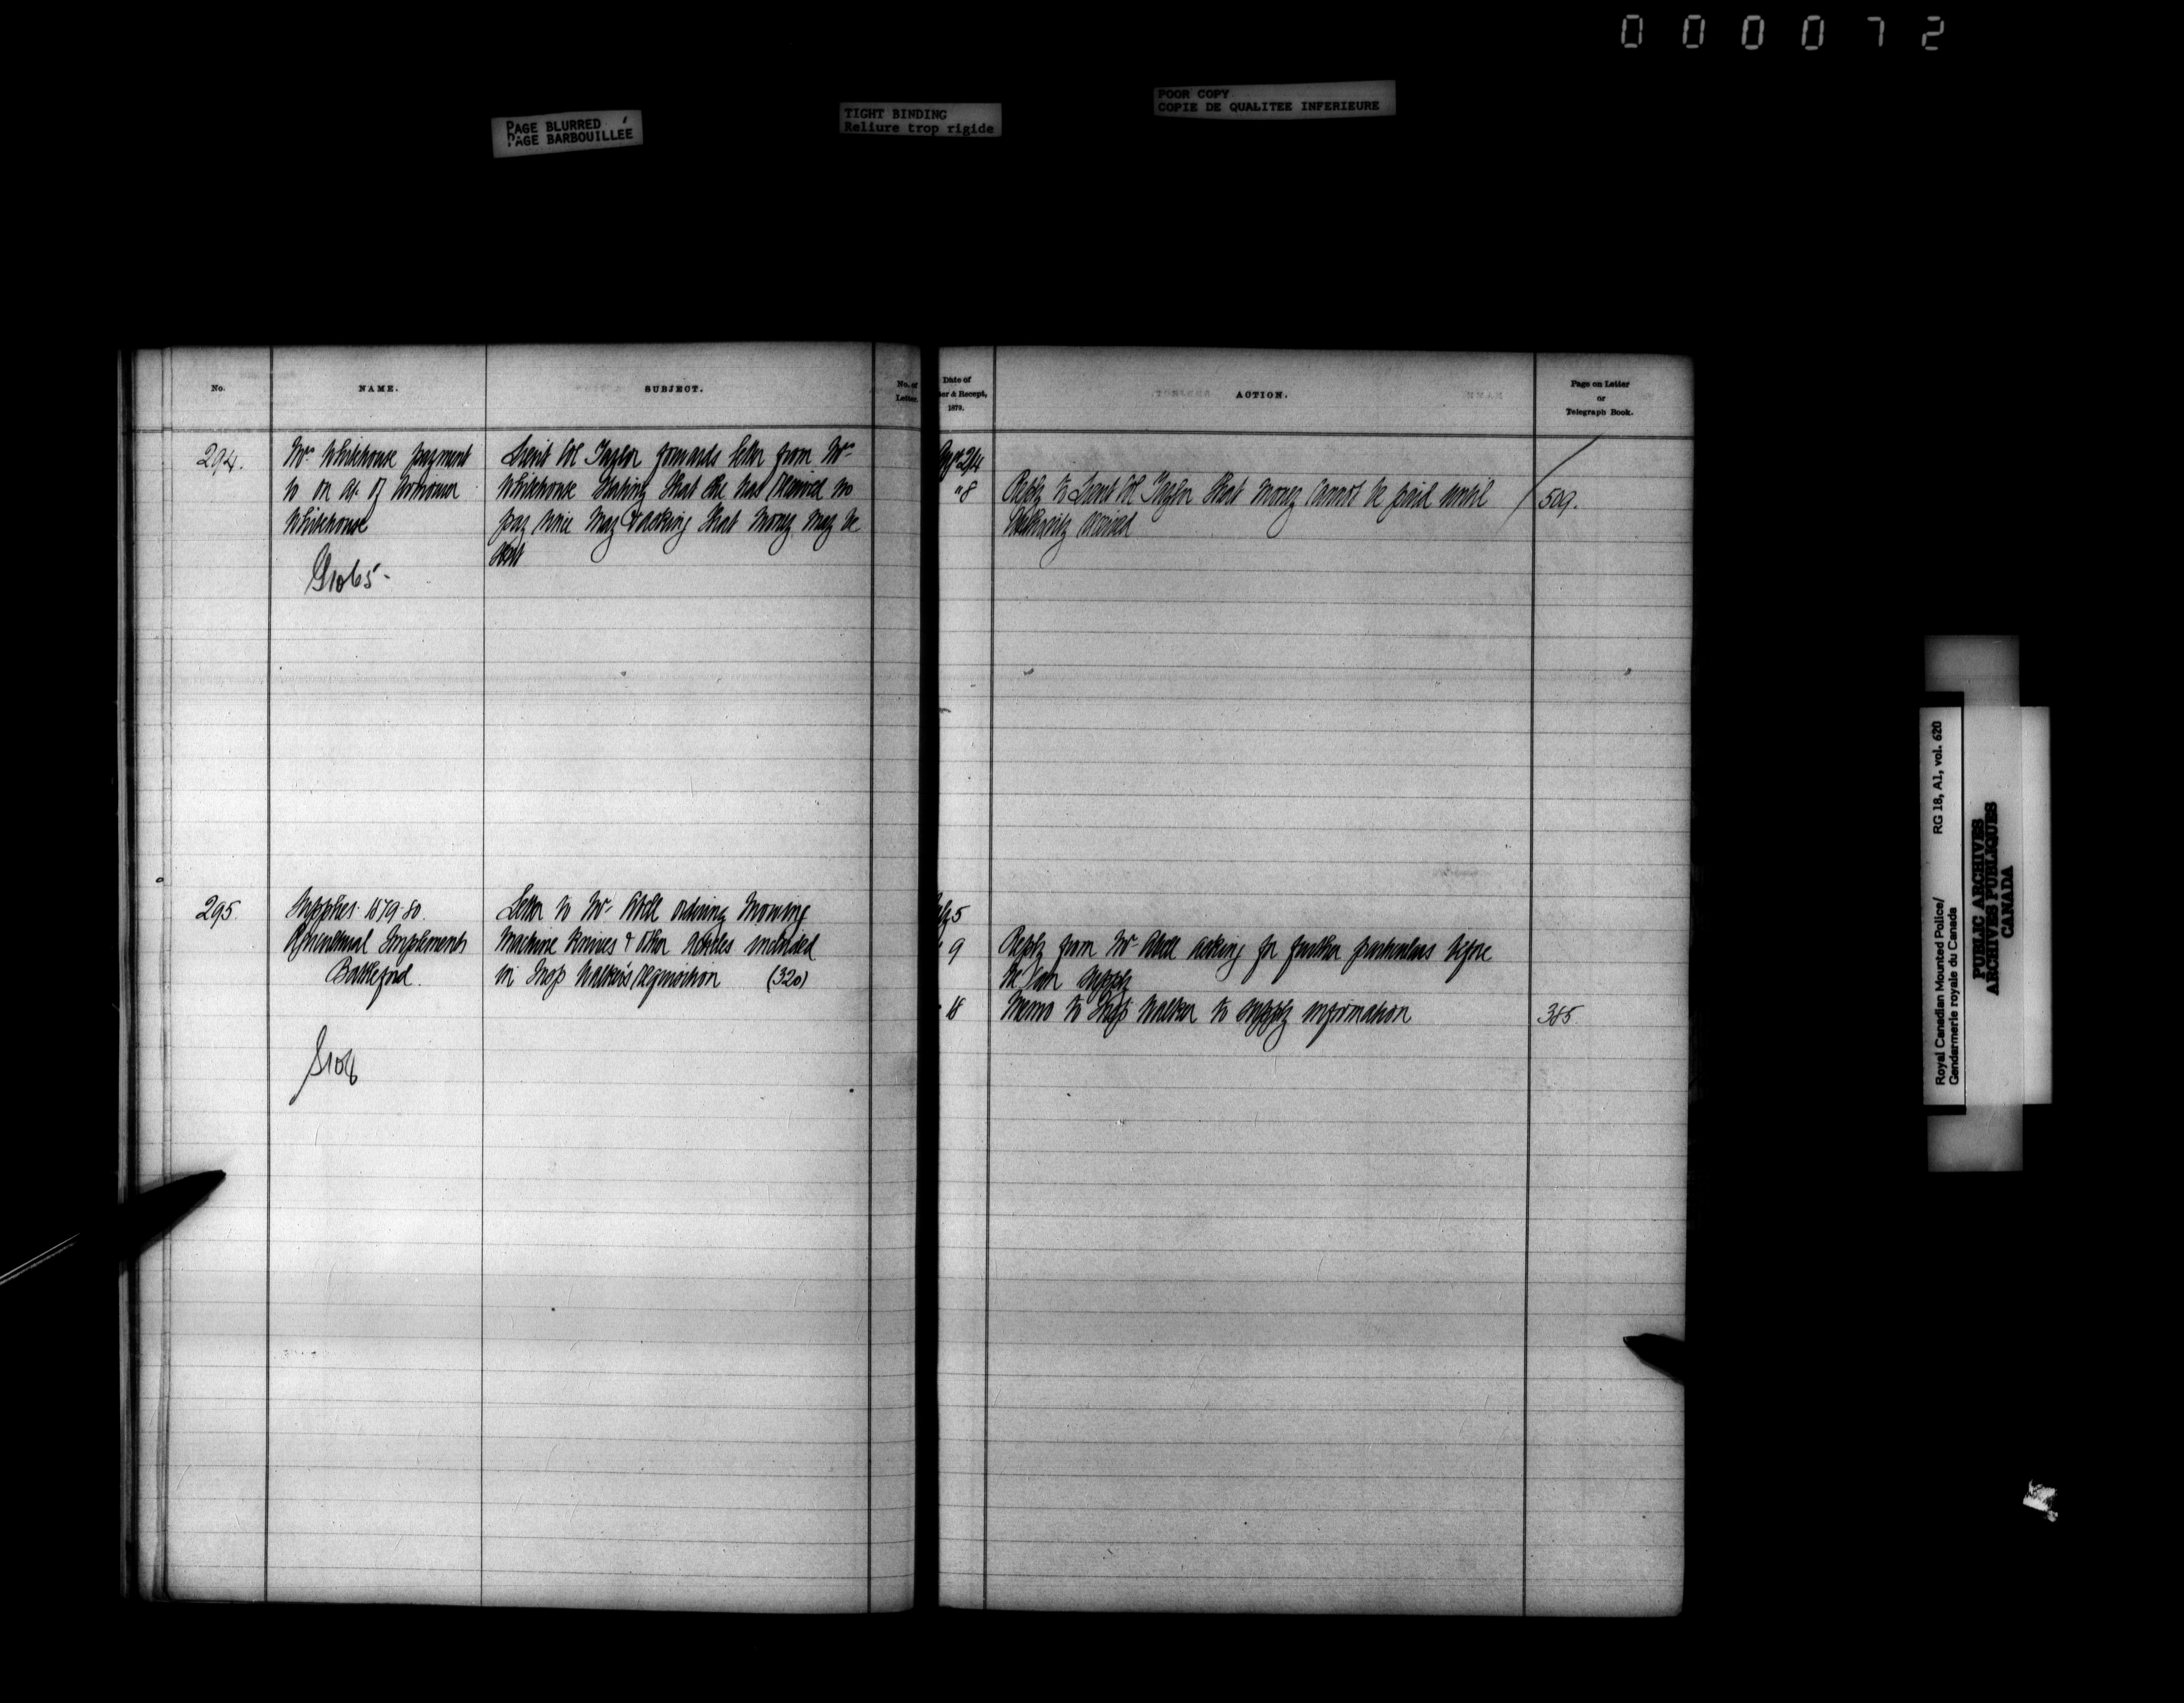 000072
PAGE BLURRED
PAGE BARBOUILLÉE
TIGHT BINDING
Reliure trop rigide
POOR COPY
COPIE DE QUALITEE INFERIEURE
No.
NAME.
SUBJECT.
No. of
Letter.
294.
Mrs Whitehouse payment
to on ac. of Armourer
Whitehouse
Lieut Col Taylor forwards letter from Mrs
Whitehouse stating that she has received no
pay since May & asking that money may be
sent
295.
Supplies 1879-80.
Agricultural Implements
Battleford.
Letter to Mr Abell ordering Mowing
Machine Knives & other articles included
in Insp Walker's Requisition (320)
Date of
er & Recept,
1879.
ACTION.
Page on Letter
or
Telegraph Book.
"8
Reply to Lieut Col Taylor that money cannot be paid until
authority received
509.
5
9
Reply from Mr Abell asking for further particulars before
he can supply
18
Memo to Insp Walker to supply information
385.
Royal Canadian Mounted Police/
Gendarmerie royale du Canada
RG 18, A1, vol. 620
PUBLIC ARCHIVES
ARCHIVES PUBLIQUES
CANADA